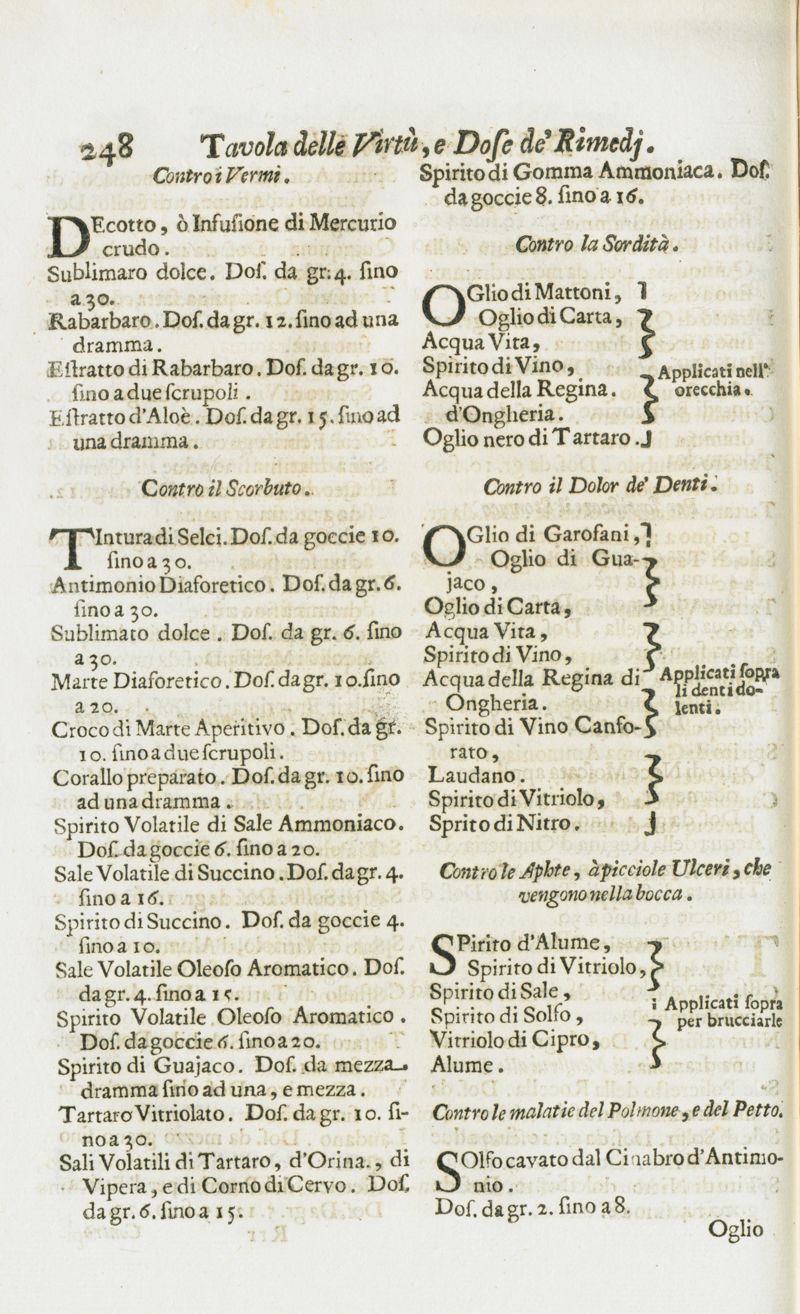 248 Tavola delle Virtù, e Dose de' Rimedj.
Contro i Vermi.
DEcotto, ò Infusione di Mercurio
crudo.
Sublimaro dolce. Dos. da gr. 4. sino
a 30.
Rabarbaro. Dos. da gr. 12. sino ad una
dramma.
Estratto di Rabarbaro. Dos. da gr. 10.
sino a due scrupoli.
Estratto d'Aloè. Dos. da gr. 15. sino ad
una dramma.
Contro il Scorbuto.
TIntura di Selci. Dos. da goccie 10.
sino a 30.
Antimonio Diaforetico. Dos. da gr. 6.
sino a 30.
Sublimato dolce. Dos. da gr. 6. sino
a 30.
Marte Diaforetico. Dos. da gr. 10. sino
a 20.
Croco di Marte Aperitivo. Dos. da gr.
10. sino a due scrupoli.
Corallo preparato. Dos. da gr. 10. sino
ad una dramma.
Spirito Volatile di Sale Ammoniaco.
Dos. da goccie 6. sino a 20.
Sale Volatile di Succino. Dos. da gr. 4.
sino a 16.
Spirito di Succino. Dos. da goccie 4.
sino a 10.
Sale Volatile Oleoso Aromatico. Dos.
da gr. 4. sino a 15.
Spirito Volatile Oleoso Aromatico.
Dos. da goccie 6. sino a 20.
Spirito di Guajaco. Dos. da mezza
dramma sino ad una, e mezza.
Tartaro Vitriolato. Dos. da gr. 10. si-
no a 30.
Sali Volatili di Tartaro, d'Orina., di
Vipera, e di Corno di Cervo. Dos.
da gr. 6. sino a 15.
Spirito di Gomma Ammoniaca. Dos.
da goccie 8. sino a 16.
Contro la Sordità.
OGlio di Mattoni,
Oglio di Carta,
Acqua Vita,
Spirito di Vino,
Acqua della Regina.
d'Ongheria.
Oglio nero di Tartaro.
Applicati nell'
orecchia.
Contro il Dolor de' Denti.
OGlio di Garofani,
Oglio di Gua-
jaco,
Oglio di Carta,
Acqua Vita,
Spirito di Vino,
Acqua della Regina di
Ongheria.
Spirito di Vino Canfo-
rato,
Laudano.
Spirito di Vitriolo,
Sprito di Nitro.
Applicati sopra
li denti do-
lenti.
Contro le Aphte, à picciole Ulceri, che
vengono nella bocca.
SPirito d'Alume,
Spirito di Vitriolo,
Spirito di Sale,
Spirito di Solfo,
Vitriolo di Cipro,
Alume.
Applicati sopra
per brucciarle
Contro le malatie del Polmone, e del Petto.
SOlfo cavato dal Cinabro d'Antimo-
nio.
Dos. da gr. 2. sino a 8.
Oglio